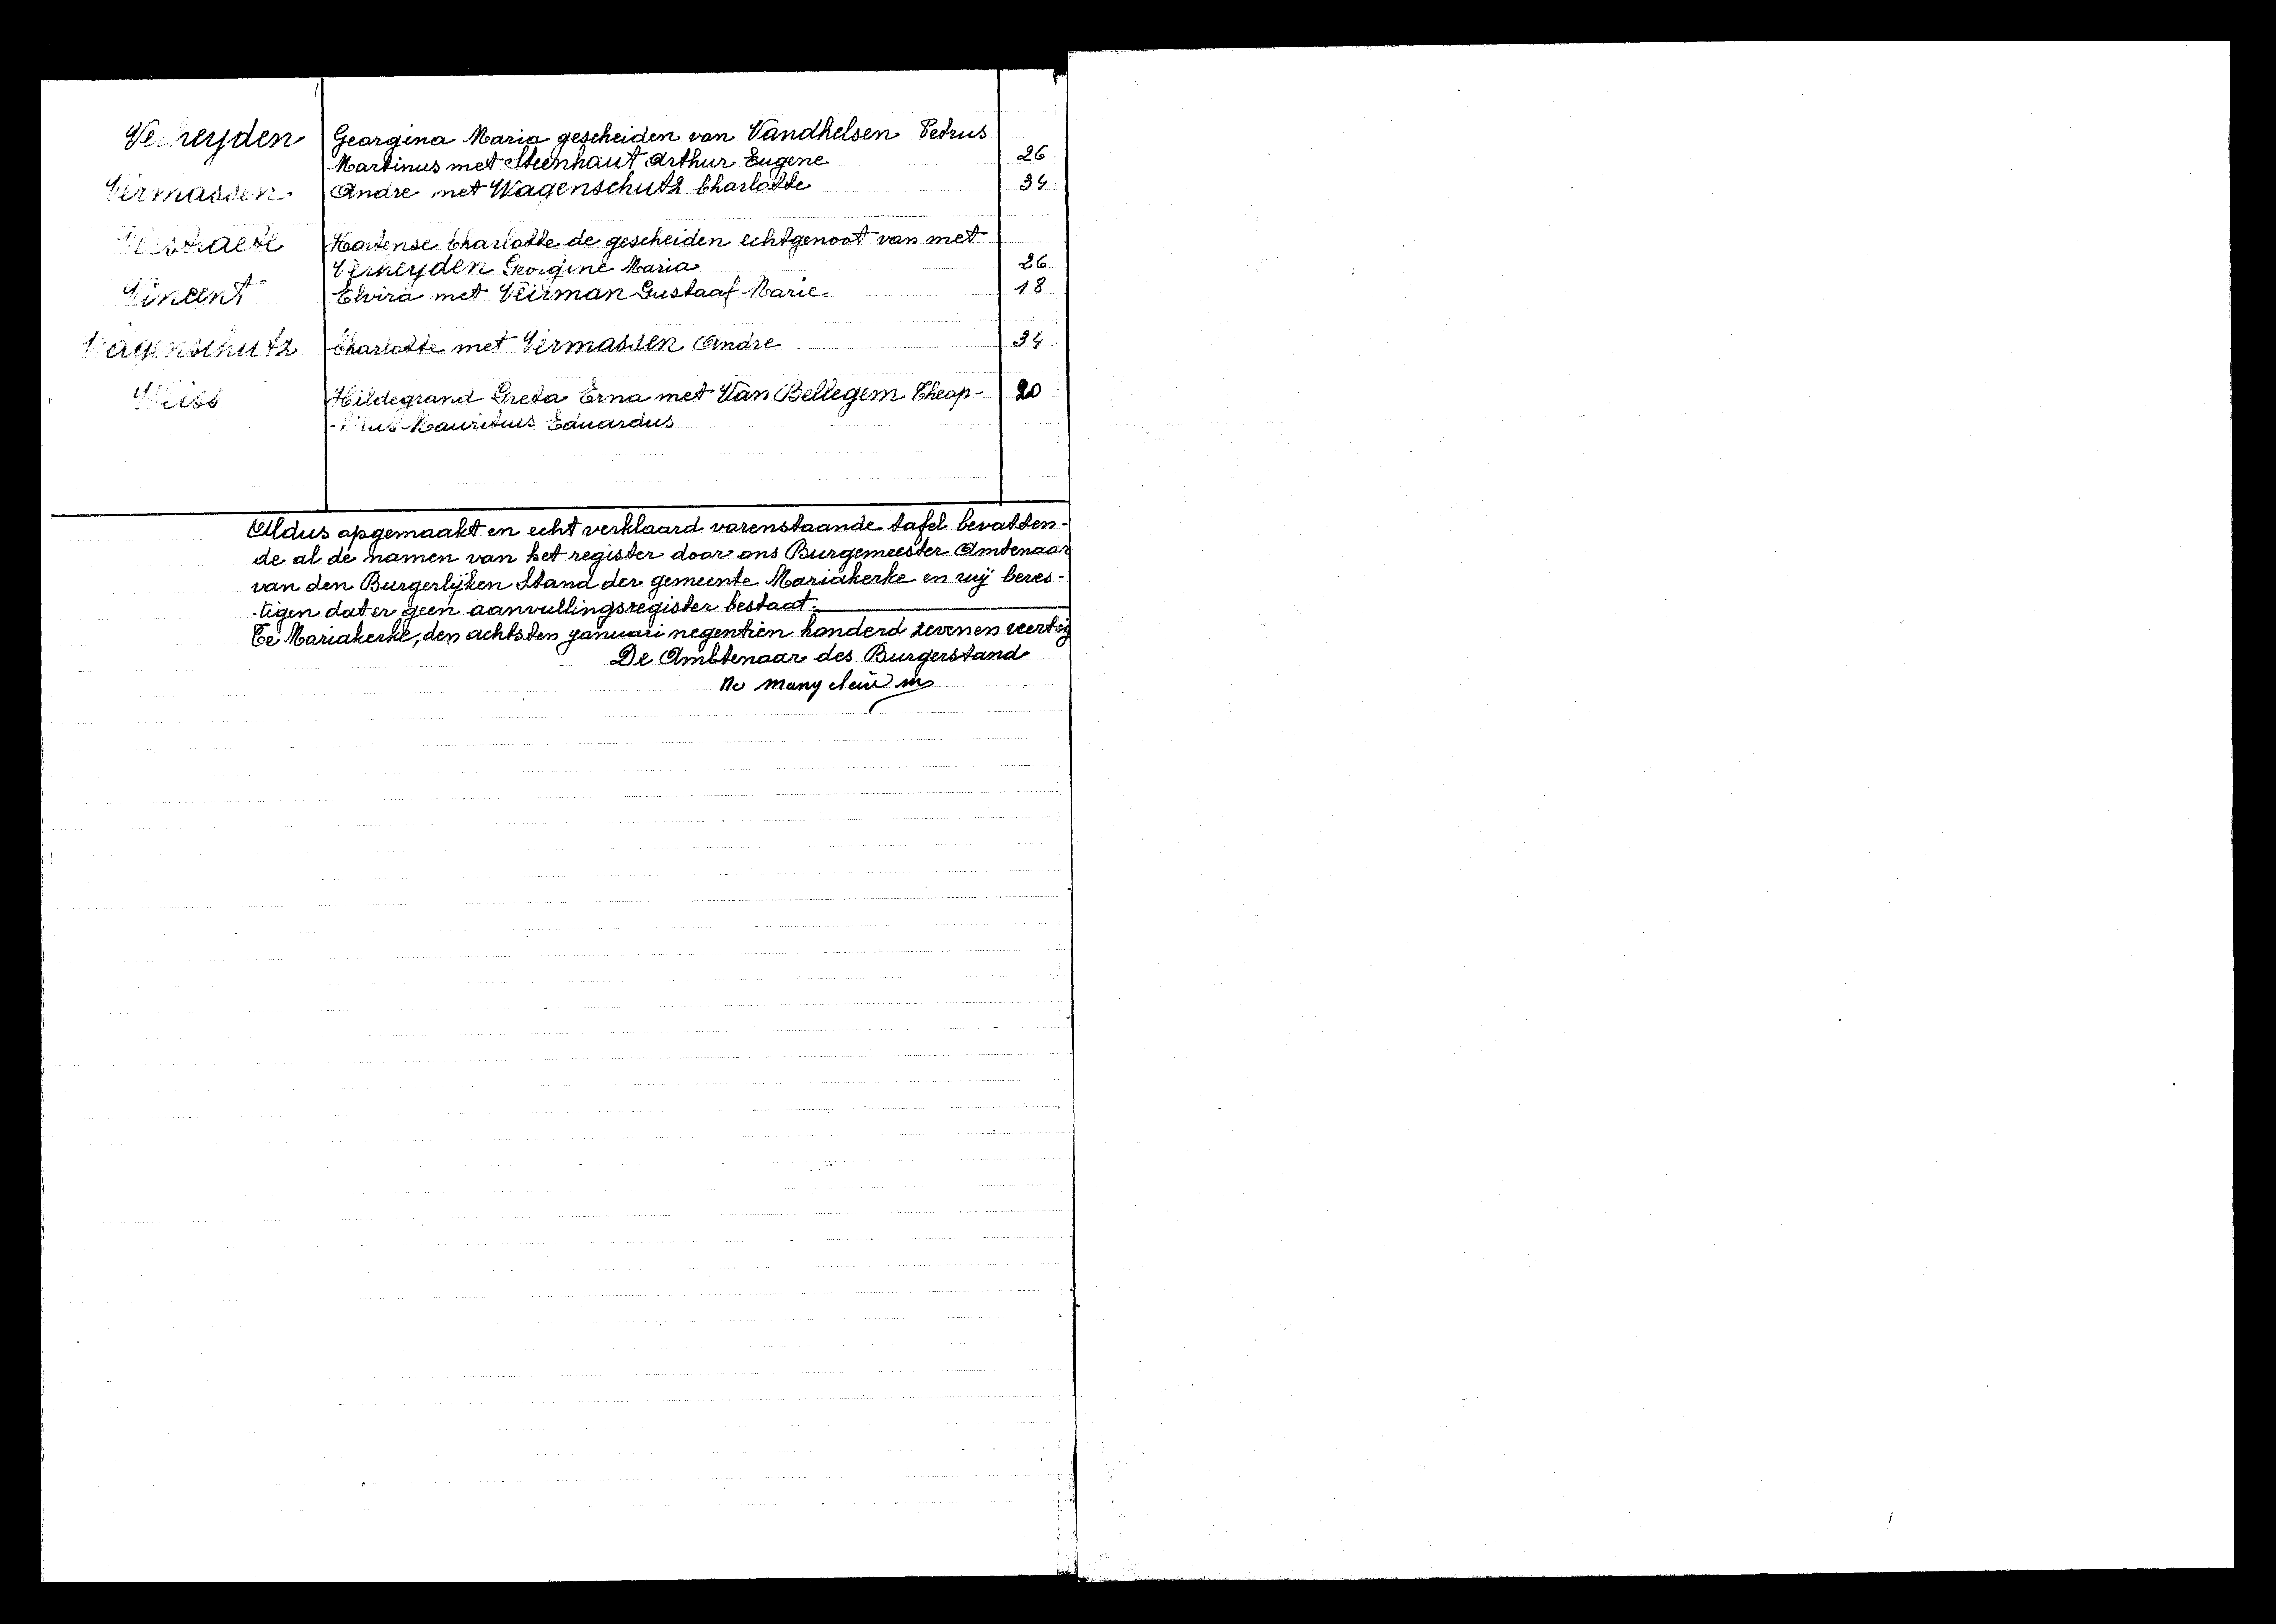 Verheyden Georgina Maria gescheiden van Vandhelsen Petrus
Martinus met Steenhaut Arthur Eugene 26
Vermassen Andre met Wagenschutz Charlotte 34
Hortense Charlotte de gescheiden echtgenoot van met
Verheyden Georgine Maria 26
Vincent Elvira met Veirman Gustaaf Marie 18
Wagenschutz Charlotte met Vermassen Andre 34
Weiss Hildegrand Greta Erna met Van Bellegem Theop- 20
Mauritius Eduardus
Aldus opgemaakt en echt verklaard vorenstaande tafel bevatten-
de al de namen van het register door ons Burgemeester Ambtenaar
van den Burgerlijken Stand der gemeente Mariakerke en wij beves-
-tigen dat er geen aanvullingsregister bestaat.
Te Mariakerke, den achtsten januari negentien honderd zeven en veertig
De Ambtenaar des Burgerstand